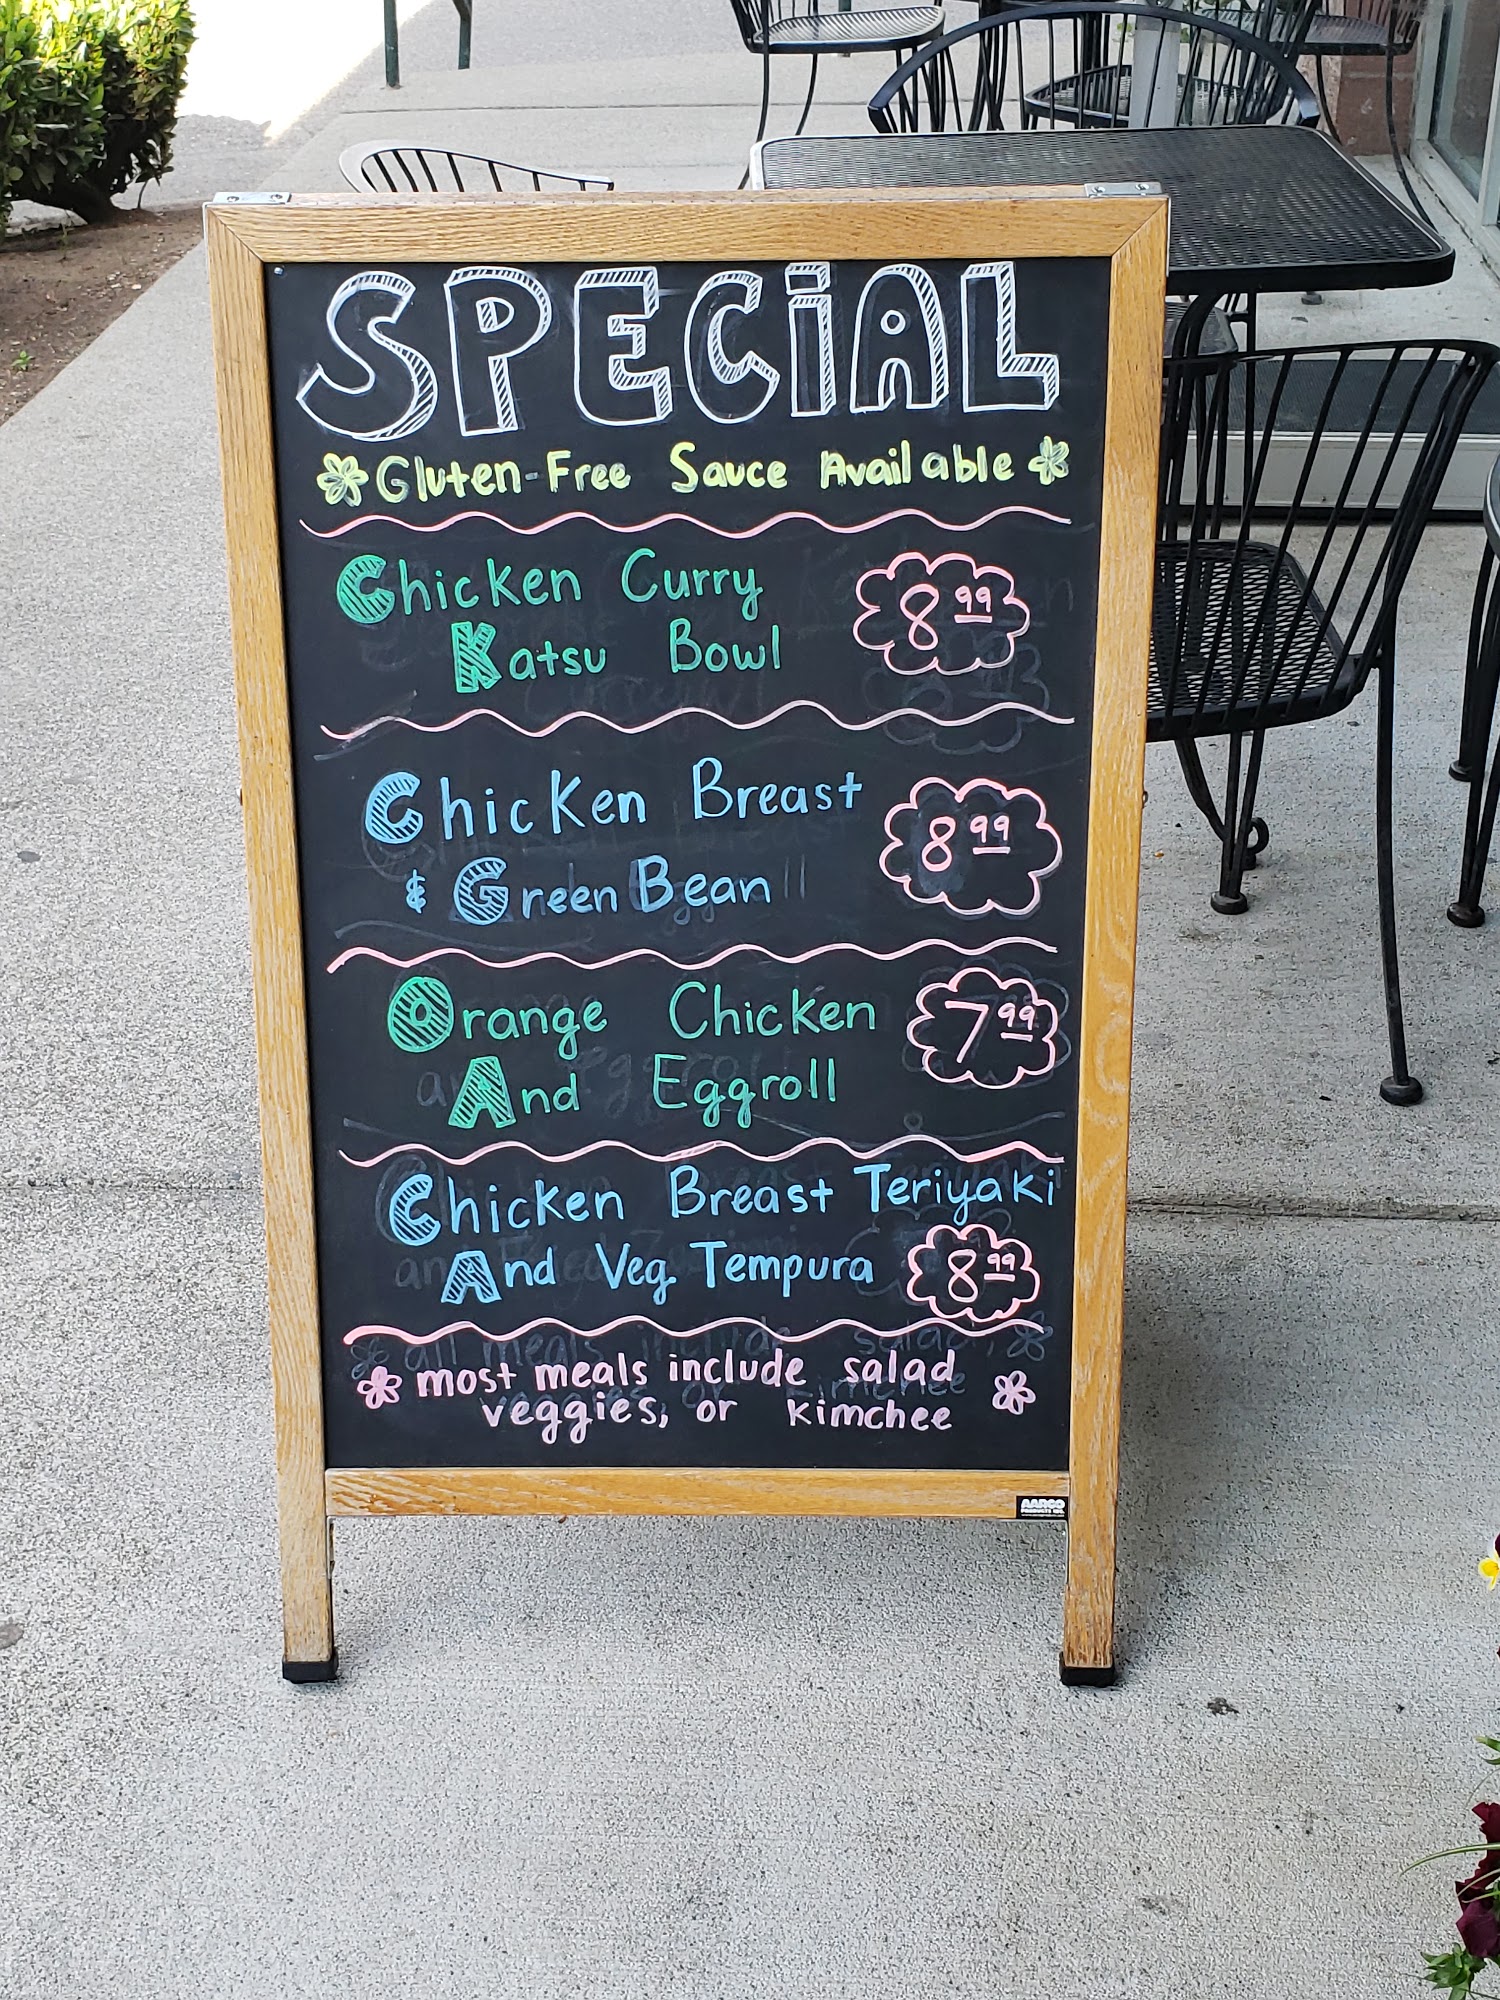 SPECiAL
Gluten-Free Sauce Available
Chicken Curry
Katsu Bowl
8.99
Chicken Breast
& Green Bean
8.99
Orange Chicken
And Eggroll
7.99
Chicken Breast Teriyaki
And Veg. Tempura
8.99
most meals include salad
veggies, or kimchee
AARCO